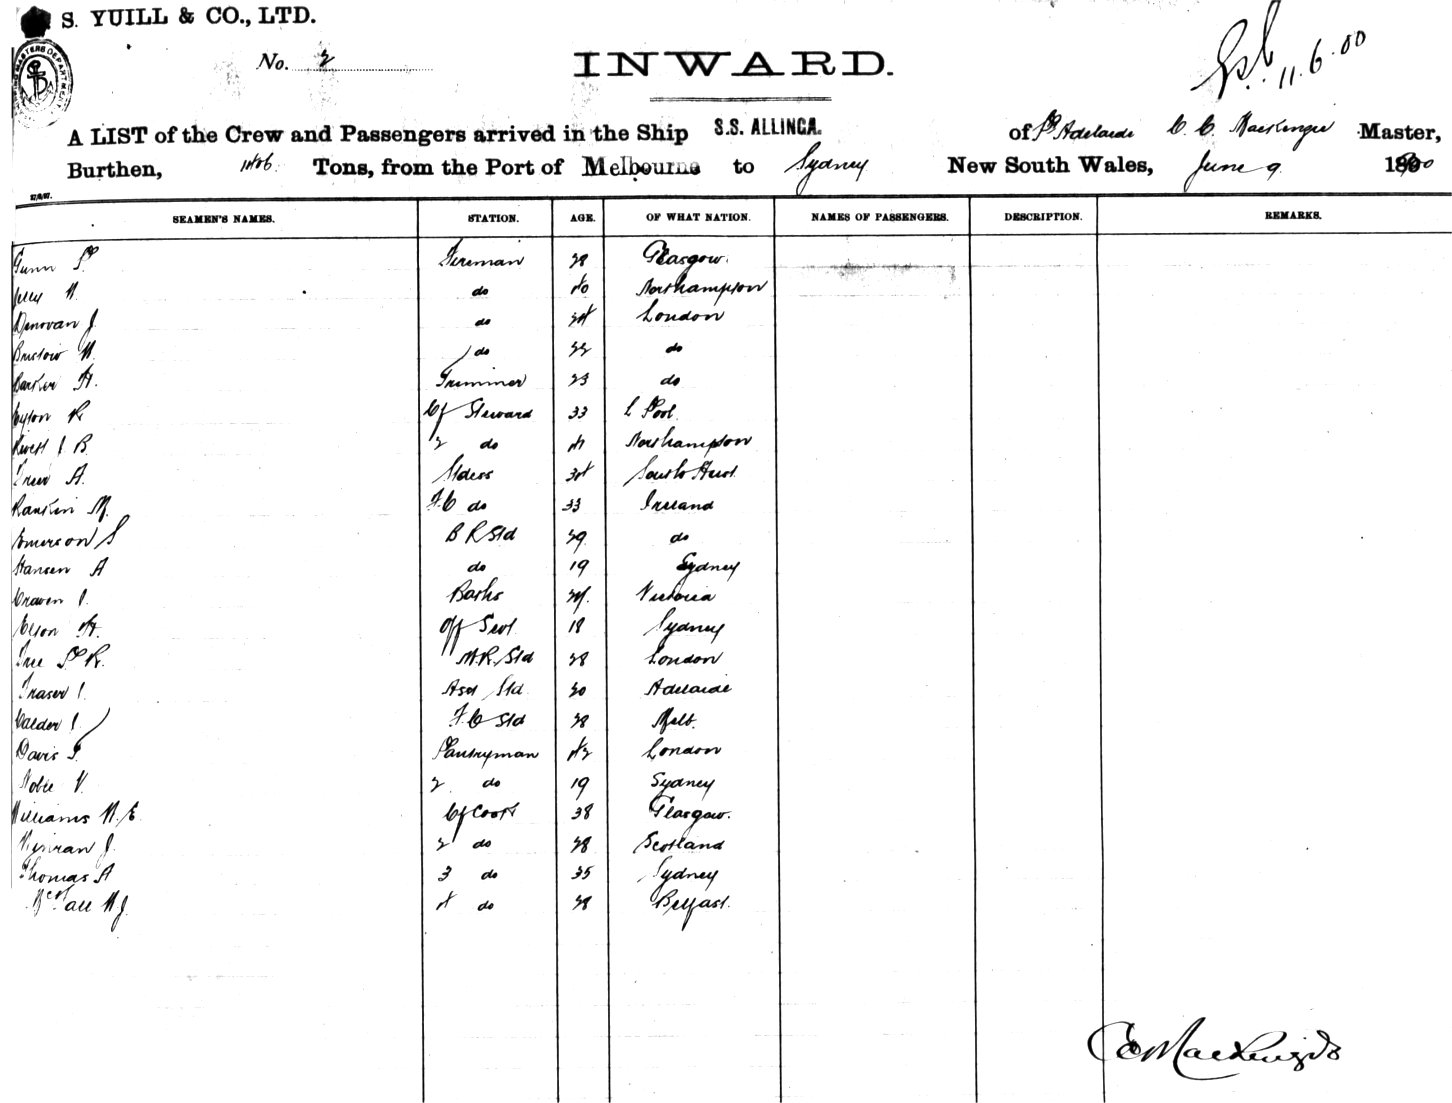 S. YUILL & CO., LTD.
No. 2
INWARD.
11.6.00
A LIST of the Crew and Passengers arrived in the Ship S.S. ALLINGA. of Pt Adelaide C. C. Mackenzie Master,
Burthen, Tons, from the Port of Melbourne to Sydney New South Wales, June 9 1900
SEAMEN'S NAMES. STATION. AGE. OF WHAT NATION. NAMES OF PASSENGERS. DESCRIPTION. REMARKS.
Gunn P. Fireman 28 Glasgow.
W. do 40 Northampton
Donovan J. do 24 London
Bristow W. do 22 do
Barker H. Trimmer 23 do
R Cf Steward 33 L Pool.
B. 2 do Northampton
A. Stdess 34
Rankin M. F.C do 33 Ireland
Emerson S B R Std 29 do
Hansen A do 19 Sydney
Craven J. Barks Victoria
H. Off Servt 18 Sydney
P R. M.R. Std 28 London
Fraser J. Asst Std. 20 Adelaide
Calder J. F.C Std 28 Melb.
Davis Pantryman 42 London
Noble V. 2 do 19 Sydney
Williams W. E. Cf Cook 38 Glasgow.
J. 2 do 28 Scotland
Thomas A 3 do 35 Sydney
W J. 4 do 28 Belfast.
C C Mackenzie